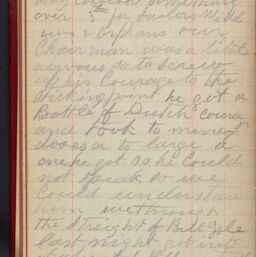 over for Sailors Widd
ows & orphans our
Chair man was a little
nervous so to screw
up his Courage to the
sticking point he got a
Bottle of Dutch coura
and took to many
doses or to large a
one he got so he Could
not speak so we
Could understan
him we through
the Streight of Bell Isle
last night got into